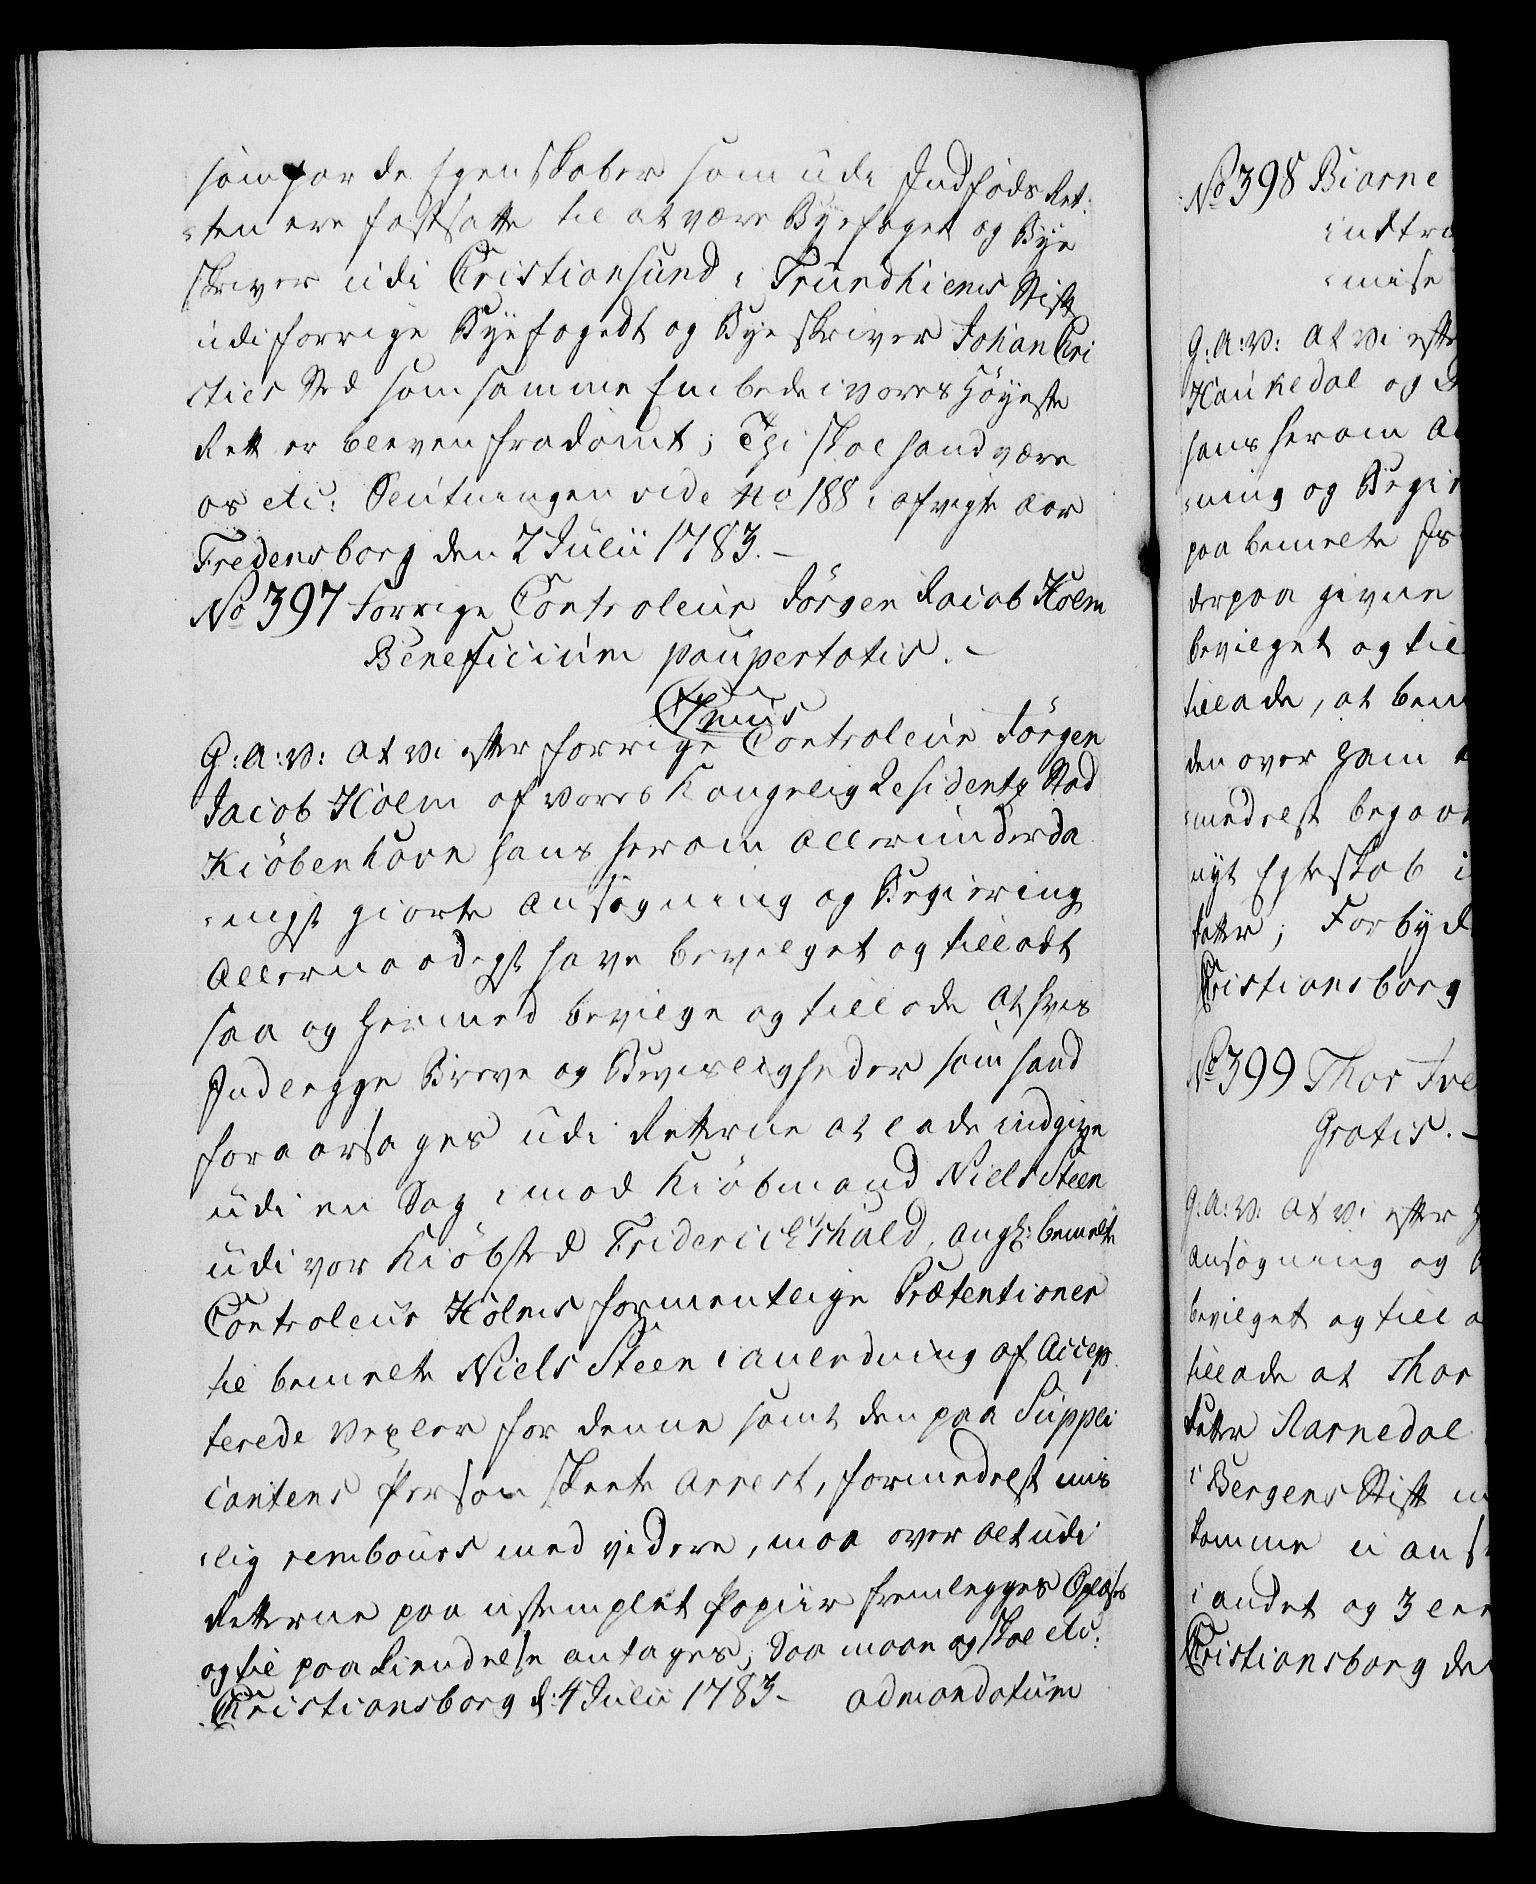 som har de Egenskaber som udi Indføds Ret-
-ten ere fastsatte til at være Byefoget og Bye
skriver udi Cristiansund i Trundhiems Stift
udi forrige Byefogedt og Byeskriver Johan Cri
sties Sted som samme Embede i vores Høyeste
Rett er bleven fradømt; Thi skal hand være
os etc: Slutningen vide No 188 i afvigte Aar
Fredensborg den 2 Julii 1783.-
No 397 Forrige Controleur Jørgen Jacob Holm
Beneficium paupertatis.-
Gratis
G:A:V: At vi efter forrige Controleur Jørgen
Jacob Holm af vores Kongelig Residentz Stad
Kiøbenhavn hans herom allerunderda
-nigst giorte Ansøgning og Begiering
Allernaadigst have bevilget og tilladt
saa og hermed bevilge og tillade At hvis
Indlegge Breve og Bevisligheder som hand
foraarsages udi Retterne at lade indgive
udi en Sag imod Kiøbmand Niels Steen
udi vor Kiøbsted Friderichshald, angl: bemelte
Controleur Holms formentlige Prætentioner
til bemelte Niels Steen i anledning af Accep
terede Vexler for denne samt den paa Suppli
cantens Person skeete Arrest, formedelst mis
-lig rembours med videre, maa over alt udi
Retterne paa ustemplet Papiir fremlegges Oplæses
og til paa Kiendelse antages; Saa maae og skal etc:
Cristiansborg d: 4 Julii 1783.- ad mandatum
No 398 Biarne
indtr
-mise
G:A:V: At vi efte
Haukedal og
hans herom A
-ning og Begie
paa bemelte
derpaa givne
bevilget og til
tillade, at bem
den over ham
-medelst begaa
nyt Egteskab i
tatter; Forbyd
Cristiansborg
No 399 Thor
Gratis.-
G:A:V: At vi efter
Ansøgning og B
bevilget og till a
tillade at Thor
datter Aarnedal
i Bergens Stift
komme ei an
i andet og 3
Cristiansborg de